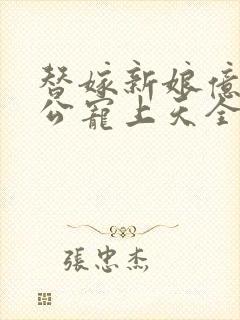 替嫁新娘億
公寵上天全
張忠杰